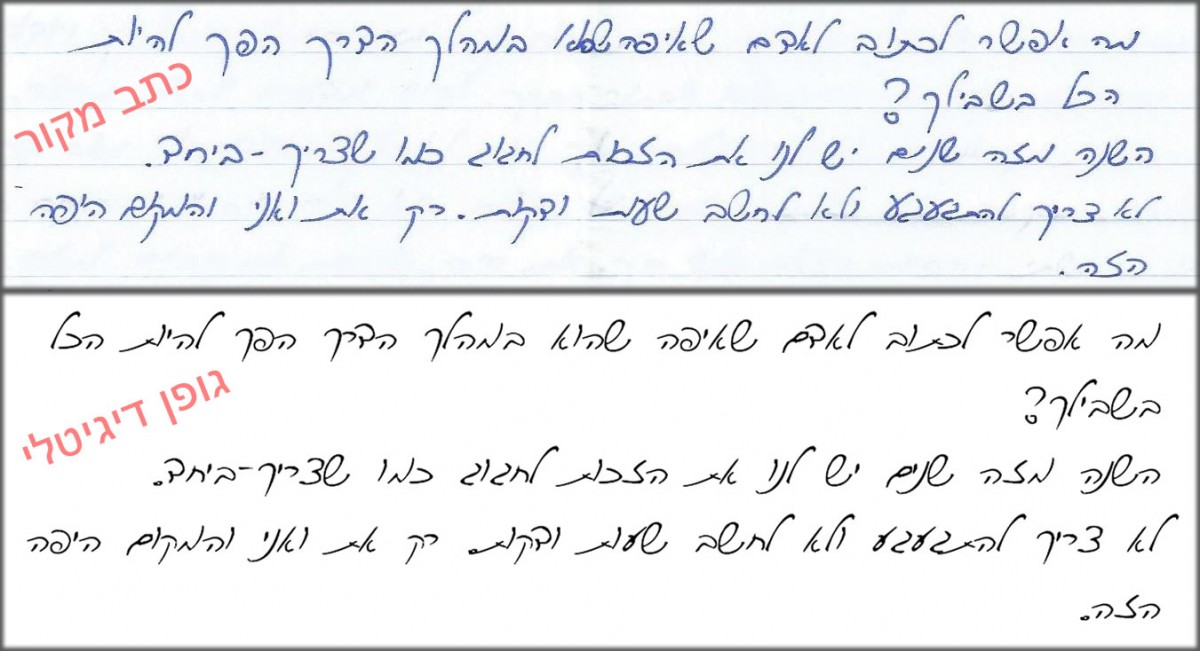 מה אפשר לכתוב לאדם שאיפה שהוא במהלך הדרך הפך להיות
הכל בשבילך?
השנה מזה שנים יש לנו את הזכות לחגוג כמו שצריך -ביחד.
לא צריך להתגעגע ולא לחשב שעות ודקות. רק את ואני והמקום היפה
הזה.
כתב מקור
מה אפשר לכתוב לאדם שאיפה שהוא במהלך הדרך הפך להיות הכל
בשבילך?
השנה מזה שנים יש לנו את הזכות לחגוג כמו שצריך-ביחד.
לא צריך להתגעגע ולא לחשב שעות ודקות. רק את ואני והמקום היפה
הזה.
גופן דיגיטלי